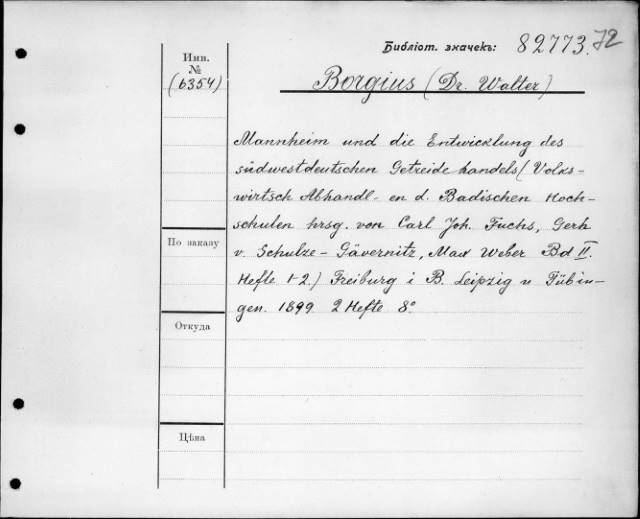 Библіот. значекъ: 82773. 72
Инв.
№
(6354)
Borgius (Dr. Walter)
Mannheim und die Entwicklung des
südwestdeutschen Getreidehandels (Volks-
wirtsch Abhandl-en d. Badischen Hoch-
schulen hrsg. von Carl Joh. Fuchs, Gerh
v. Schulze-Gävernitz, Max Weber Bd II.
Hefte 1-2.) Freiburg i B. Leipzig u Tübin-
gen. 1899 2 Hefte 8°
По заказу
Откуда
Цѣна